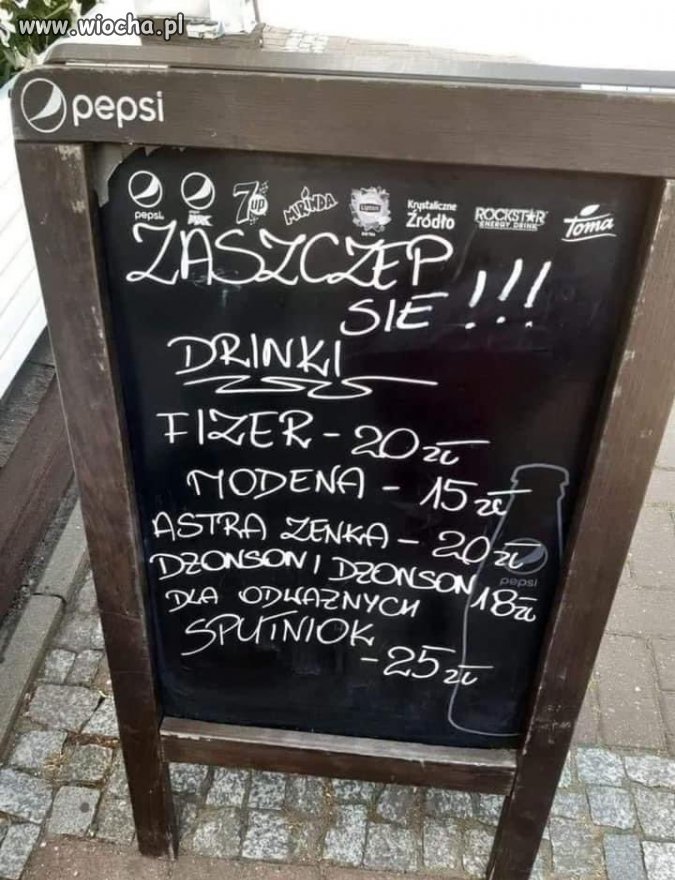 www.wiocha.pl
pepsi
pepsi MAX 7up MIRINDA Lipton Krystaliczne Źródło ROCKSTAR ENERGY DRINK Toma
pepsi
ZASZCZEP
SIE !!!
DRINKI
FIZER - 20 zł
MODENA - 15 zł
ASTRA ZENKA - 20 zł
DŻONSON I DŻONSON 18 zł
DLA ODWAŻNYCH
SPUTNIOK
- 25 zł
pepsi